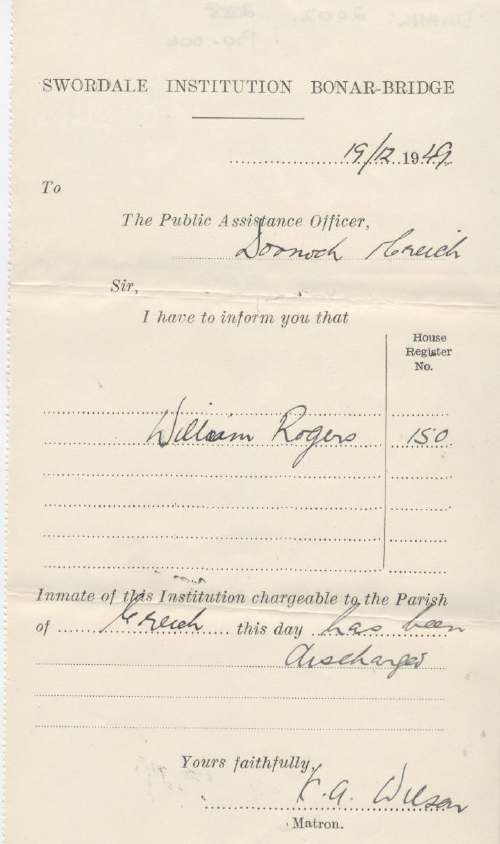 SWORDALE INSTITUTION BONAR-BRIDGE
19/12 1949
To
The Public Assistance Officer,
Dornoch Creich
Sir,
I have to inform you that
House
Register
No.
William Rogers 150
Inmate of this Institution chargeable to the Parish
of Creich this day has been
discharged
Yours faithfully,
K. A. Wilson
Matron.